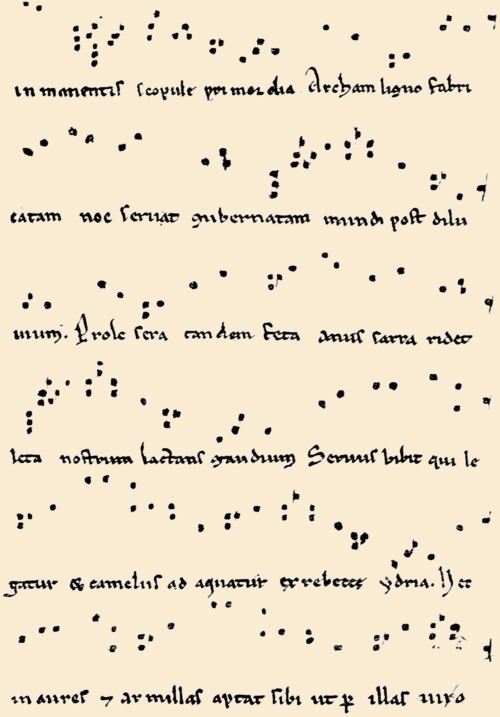 inmanentis scopule pri mor dia Archam ligno fabri
catam noe seruat gubernatam mundi post dilu
uium. Prole sera tandem feta anus sarra ridet
leta nostrum lactans gaudium Seruus bibit qui le
gatur & camelus ad aquatur ex rebecce ydria. Hec
in aures ⁊ ar millas aptat sibi ut ꝑ illas uiro